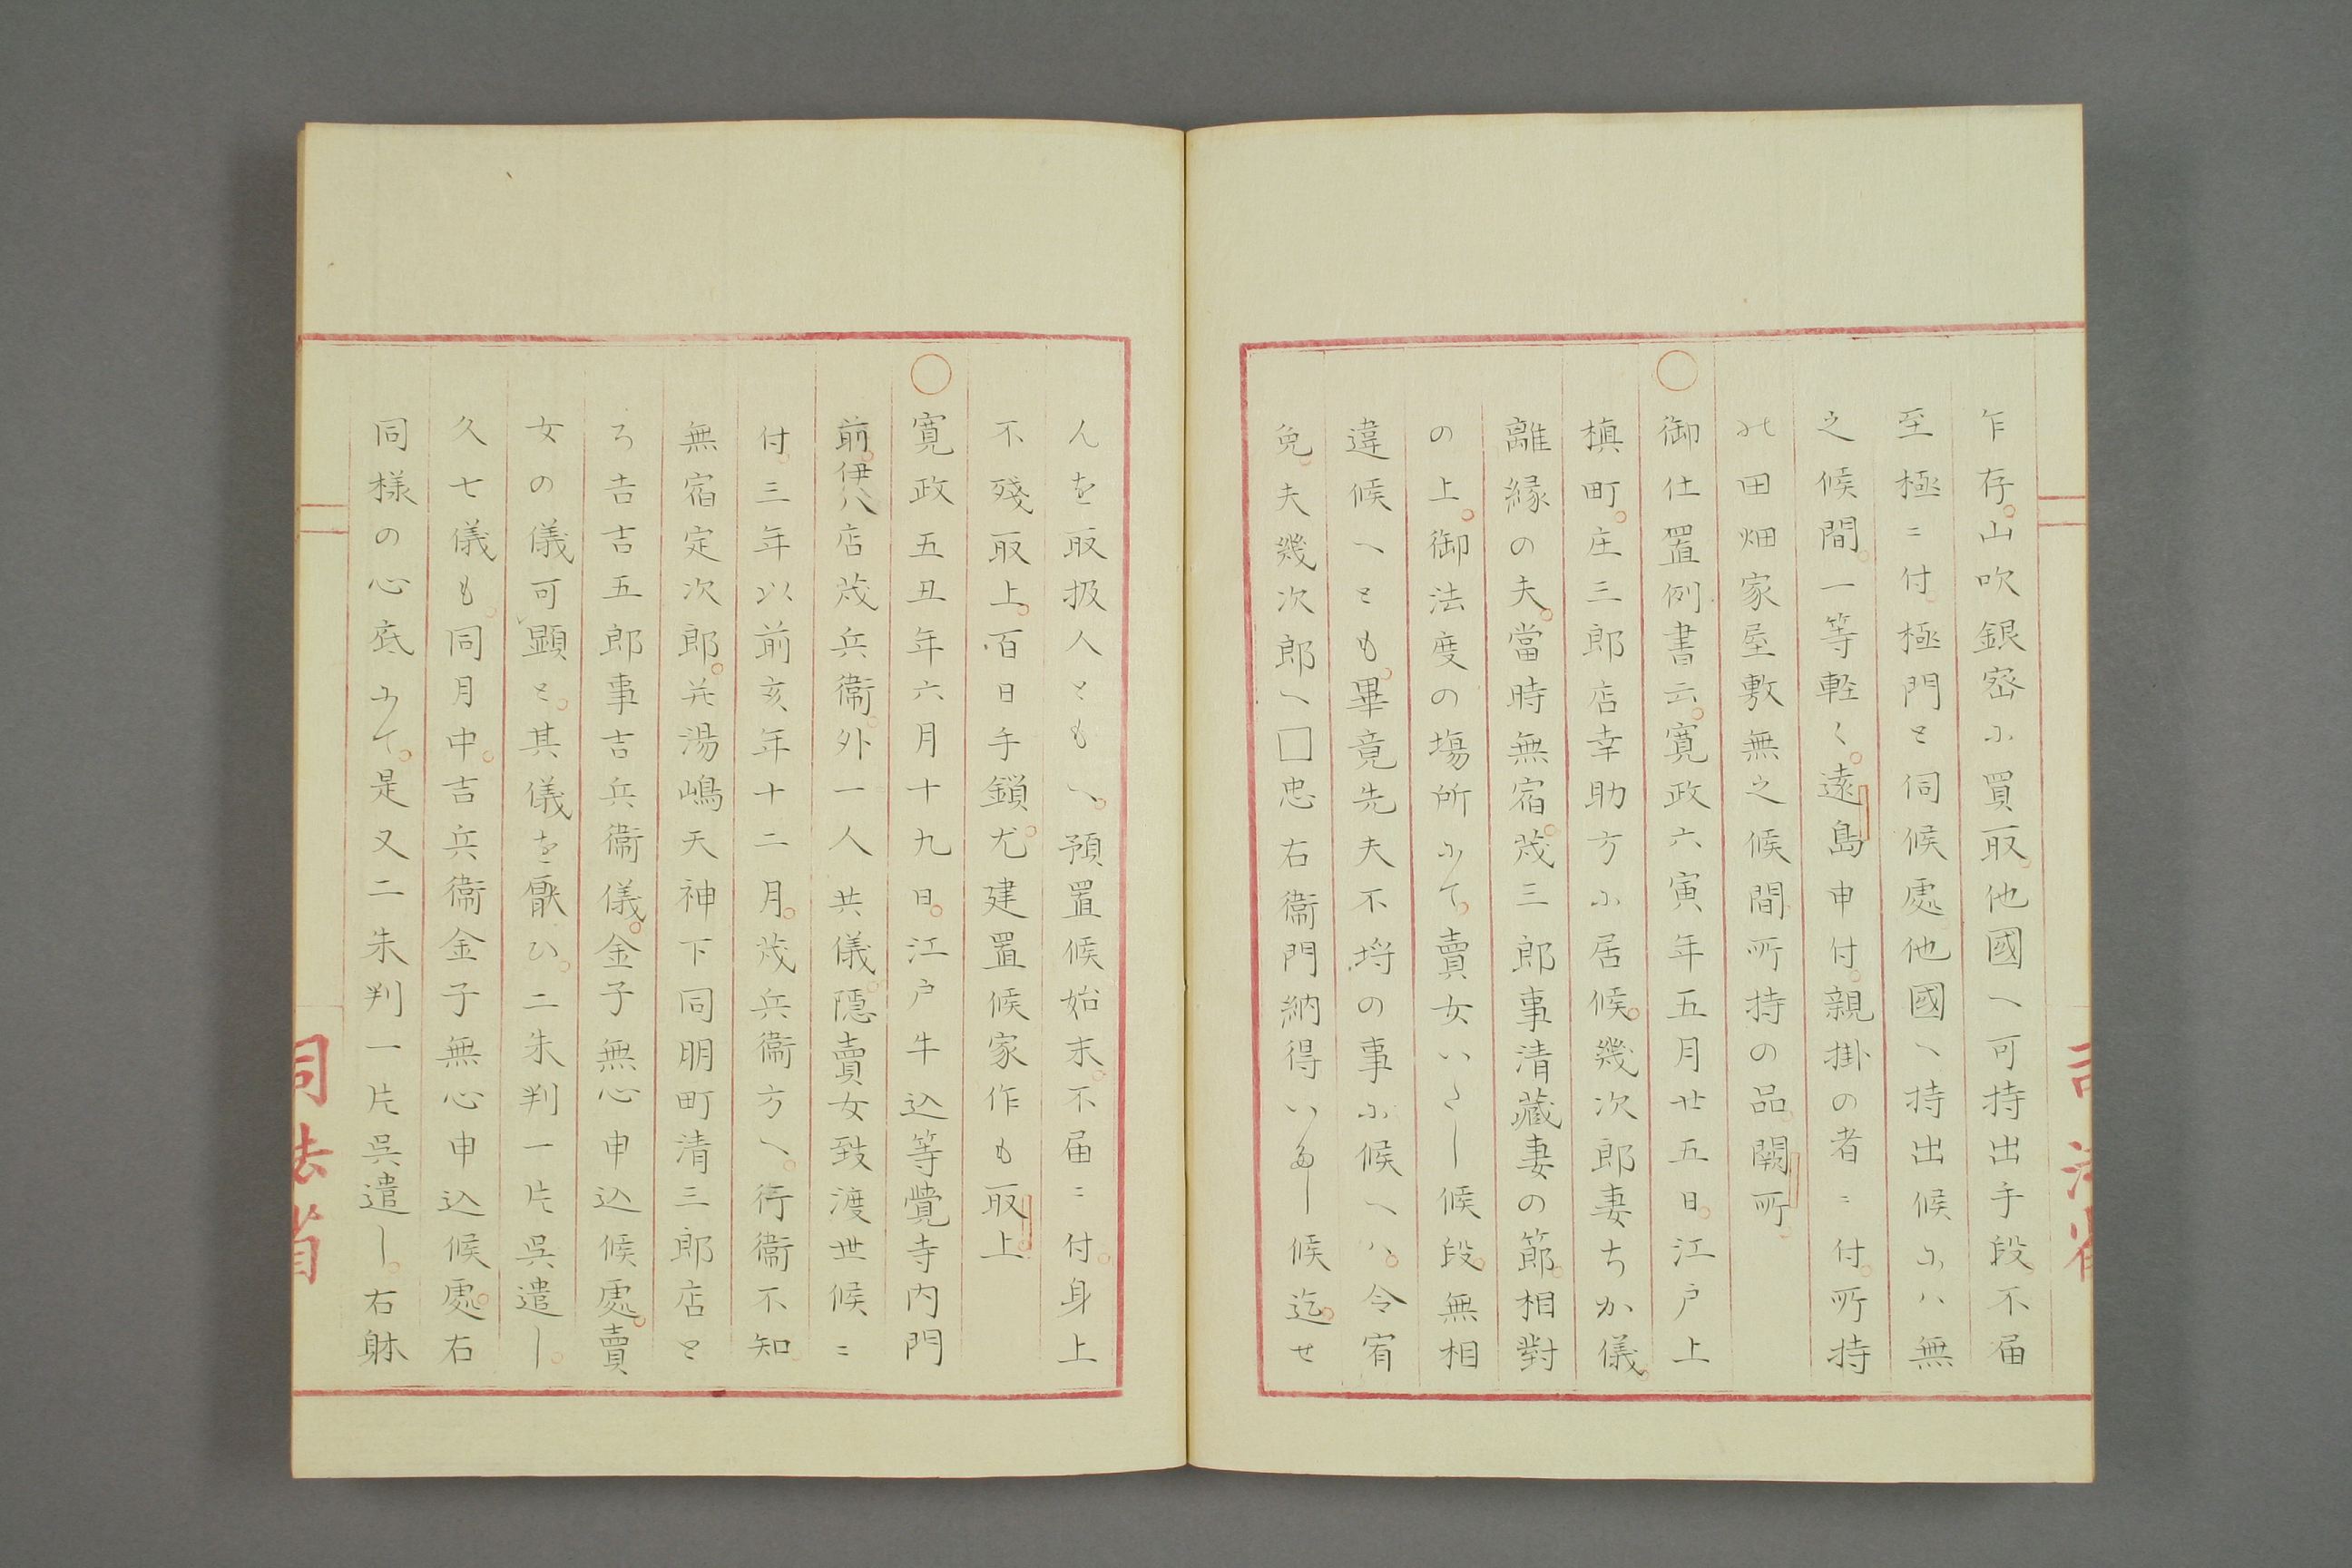 乍存。山吹銀密ニ買取。他國へ可持出手段。不届
至極ニ付。極門と伺候處。他國へ持出候ハ無
之候間。一等軽く。遠島申付。親掛の者ニ付。所持
の田畑家屋敷無之候間。所持の品。闕所。
〇御仕置例書云。寛政六寅年五月廿五日。江戸上
槙町。庄三郎店幸助方ニ居候。幾次郎妻ちか儀。
離縁の夫。當時無宿。茂三郎事清藏妻の節。相對
の上。御法度の塲所ニて。賣女いたし候段。無相
違候へとも。畢竟先夫不埒の事ニ候へハ。令宥
免。夫幾次郎へ□忠右衞門納得いたし候迄。せ
んを取扱人ともへ。預置候始末。不届ニ付。身上
不殘取上。百日手鎖。尤建置候家作も取上。
〇寛政五丑年六月十九日。江戸牛込等覺寺内門
前。伊八店茂兵衞。外一人共儀。隱賣女致渡世候ニ
付。三年以前亥年十二月。茂兵衞方へ。行衞不知。
無宿定次郎。并湯嶋天神下同朋町清三郎店と
ろ吉吉五郎事吉兵衞儀。金子無心申込候處。賣
女の儀可顕と。其儀を厭ひ。二朱判一片呉遣し。
久七儀も。同月中。吉兵衞金子無心申込候處。右
同様の心底ニて。是又二朱判一片呉遣し。右躰
司法省
司法省